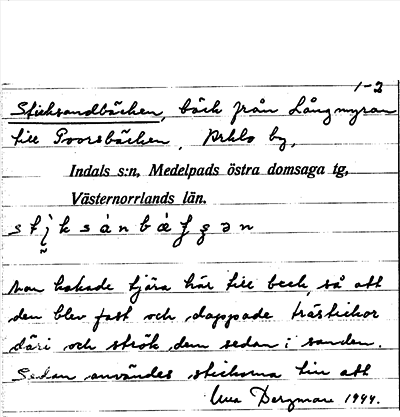 1-2
Sticksandbäcken, bäck från Långmyran
till Poorsbäcken, by,
Indals s:n, Medelpads östra domsaga tg,
Västernorrlands län.
man kokade tjära här till beck, så att
den blev fast och doppade trästickor
däri och strök dem sedan i sanden.
Sedan användes stickorna till att
Bergman 1944.